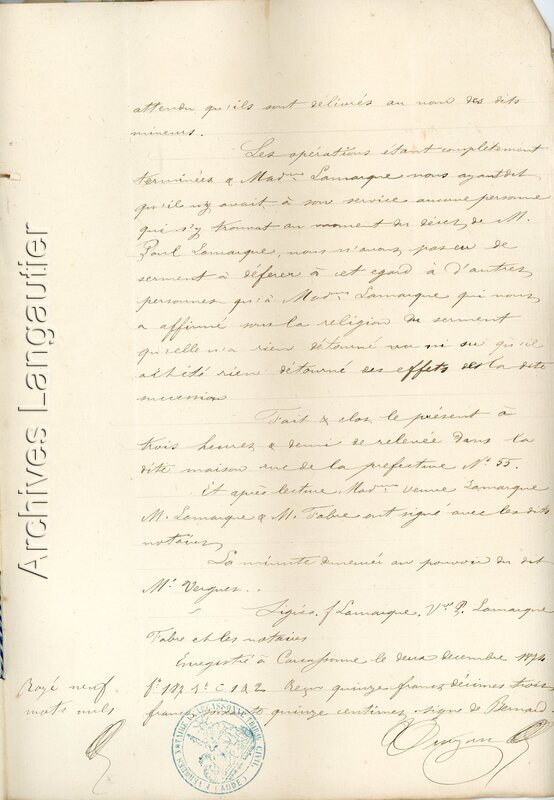 attendu qu'ils sont délivrés au nom des dits
mineurs.
Les opérations étant complètement
terminées & Mad.me Lamarque nous ayant dit
qu'il n'y avait à son service aucune personne
qui s'y trouvat au moment du décès de M.
Paul Lamarque, nous n'avons pas eu de
serment à déférer à cet egard à d'autres
personnes qu'à Mad.me Lamarque qui nous
a affirmé sous la religion du serment
qu'elle n'a rien détourné vu ni su qu'il
ait été rien détourné des effets de la dite
succession
Fait & clos le présent à
trois heures & demi de relevée dans la
dite maison rue de la prefecture N° 55.
Et après lecture Mad.me veuve Lamarque
M. Lamarque & M. Fabre ont signé avec les dits
notaires
La minute demeurée au pouvoir du dit
Me Vergues.
Signés. f Lamarque, Vve P. Lamarque
Fabre et les notaires
Enregistré à Carcassonne le deux decembre 1874
f° 187 C 1 & 2 Reçu quinze francs, décimes trois
francs quinze centimes signé de Bernard.
Rayé neuf
mots nuls
Archives Langautier
(AUDE)